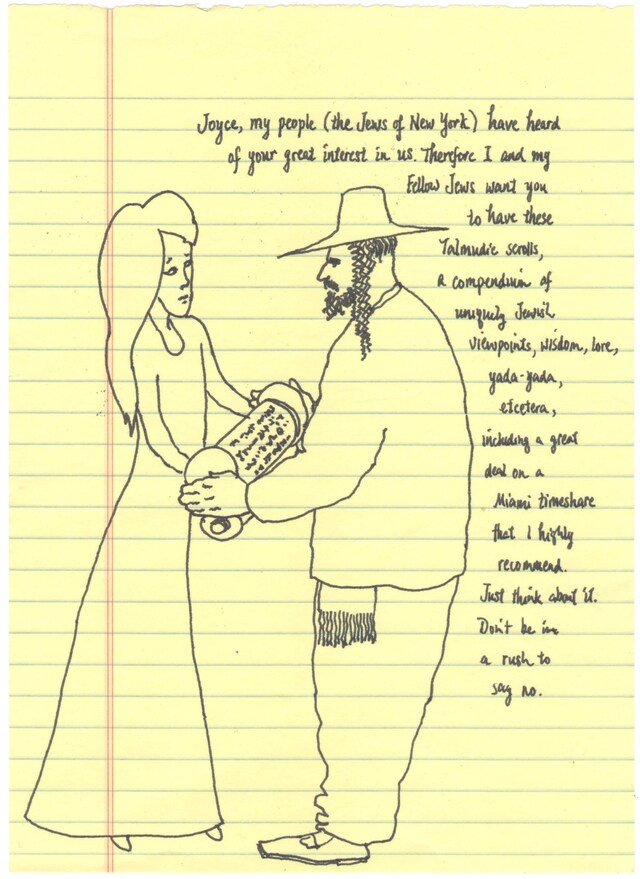 Joyce, my people (the Jews of New York) have heard
of your great interest in us. Therefore I and my
Fellow Jews want you
to have these
Talmudic scrolls,
a compendium of
uniquely Jewish
viewpoints, wisdom, lore,
yada-yada,
etcetera,
including a great
deal on a
Miami timeshare
that I highly
recommend.
Just think about it.
Don't be in
a rush to
say no.